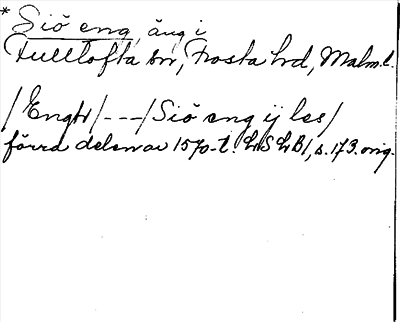 * Siö eng, äng i
Fulltofta sn, Frosta hd, Malm.l.
/Engtr/ - - - /Siö eng ij les/
förra delen av 1570-t. LSLB1, s. 173. orig.